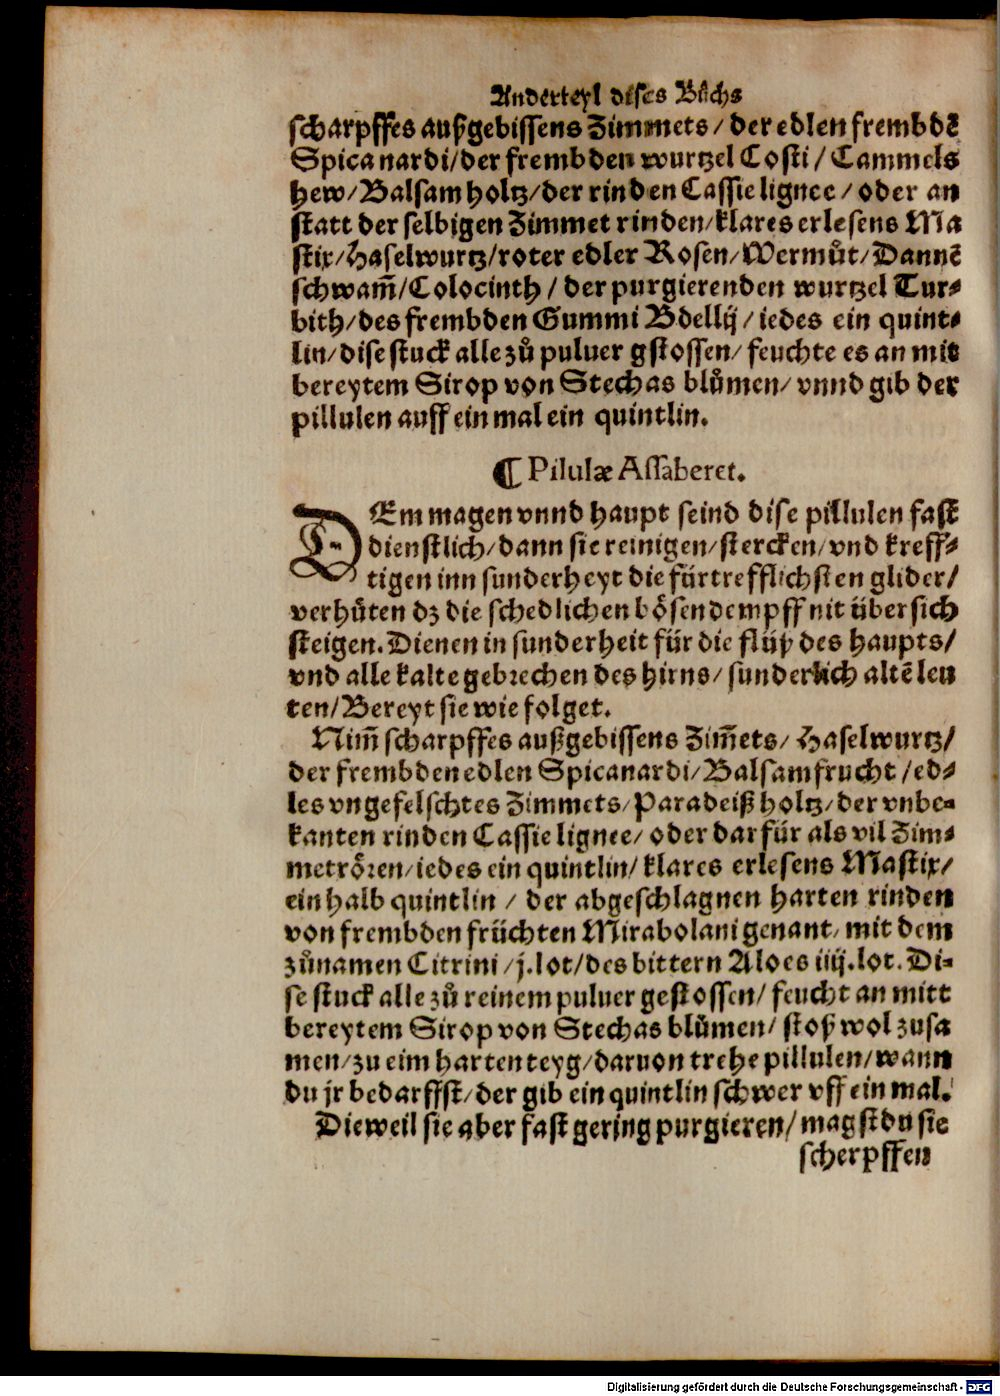 Anderteyl dises Bůchs
scharpffes außgebissens Zimmets / der edlen frembdẽ
Spica nardi / der frembden wurtzel Costi / Cammels
hew / Balsam holtz / der rinden Cassie lignee / oder an
statt der selbigen Zimmet rinden / klares erlesens Ma
stix / Haselwurtz / roter edler Rosen / Wermůt / Dannẽ
schwam̃ / Colocinth / der purgierenden wurtzel Tur⸗
bith / des frembden Gummi Bdellij / iedes ein quint⸗
lin / dise stuck alle zů puluer gstossen / feuchte es an mit
bereytem Sirop von Stechas blůmen / vnnd gib der
pillulen auff ein mal ein quintlin.
¶ Pilulæ Assaberet.
DEm magen vnnd haupt seind dise pillulen fast
dienstlich / dann sie reinigen / stercken / vnd kreff⸗
tigen inn sunderheyt die fürtrefflichsten glider /
verhůten dz die schedlichen bösen dempff nit über sich
steigen. Dienen in sunderheit für die flüß des haupts /
vnd alle kalte gebrechen des hirns / sunderlich altẽ leu
ten / Bereyt sie wie folget.
Nim̃ scharpffes außgebissens Zim̃ets / Haselwurtz /
der frembden edlen Spicanardi / Balsamfrucht / ed⸗
les vngefelschtes Zimmets / Paradeiß holtz / der vnbe⸗
kanten rinden Cassie lignee / oder darfür als vil Zim⸗
metrören / iedes ein quintlin / klares erlesens Mastix /
ein halb quintlin / der abgeschlagnen harten rinden
von frembden früchten Mirabolani genant / mit dem
zůnamen Citrini / j. lot / des bittern Aloes iiij. lot. Di⸗
se stuck alle zů reinem puluer gestossen / feucht an mitt
bereytem Sirop von Stechas blůmen / stoß wol zusa
men / zu eim harten teyg / daruon trehe pillulen / wann
du jr bedarffst / der gib ein quintlin schwer vff ein mal.
Dieweil sie aber fast gering purgieren / magstdu sie
scherpffen
Digitalisierung gefördert durch die Deutsche Forschungsgemeinschaft - DFG